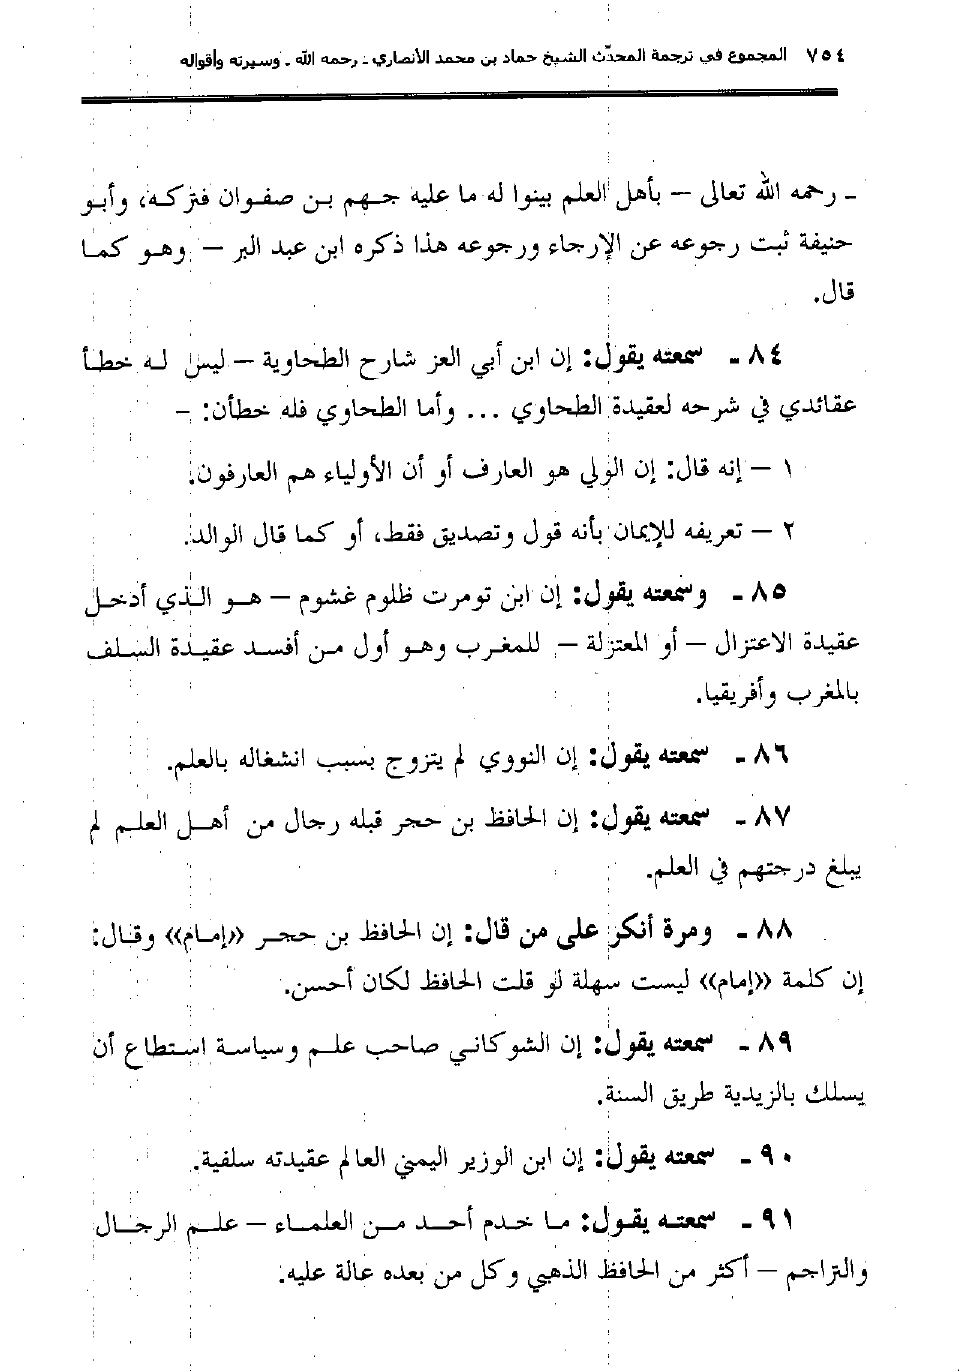 ٧٥٤ المجموع في ترجمة المحدّث الشيخ حماد بن محمد الأنصاري ـ رحمه الله ـ وسيرته وأقواله
ـ رحمه الله تعالى – بأهل العلم بينوا له ما عليه جهم بن صفوان فتركه، وأبو
حنيفة ثبت رجوعه عن الإرجاء ورجوعه هذا ذكره ابن عبد البر – وهو كما
قال.
٨٤ ـ سمعته يقول: إن ابن أبي العز شارح الطحاوية – ليس له خطأ
عقائدي في شرحه لعقيدة الطحاوي ... وأما الطحاوي فله خطأن: –
١ – إنه قال: إن الولي هو العارف أو أن الأولياء هم العارفون.
٢ – تعريفه للإيمان بأنه قول وتصديق فقط، أو كما قال الوالد.
٨٥ ـ وسمعته يقول: إن ابن تومرت ظلوم غشوم – هو الذي أدخل
عقيدة الاعتزال – أو المعتزلة – للمغرب وهو أول من أفسد عقيدة السلف
بالمغرب وأفريقيا.
٨٦ ـ سمعته يقول: إن النووي لم يتزوج بسبب انشغاله بالعلم.
٨٧ ـ سمعته يقول: إن الحافظ بن حجر قبله رجال من أهل العلم لم
يبلغ درجتهم في العلم.
٨٨ ـ ومرة أنكر على من قال: إن الحافظ بن حجر «إمام» وقال:
إن كلمة «إمام» ليست سهلة لو قلت الحافظ لكان أحسن.
٨٩ ـ سمعته يقول: إن الشوكاني صاحب علم وسياسة استطاع أن
يسلك بالزيدية طريق السنة.
٩٠ ـ سمعته يقول: إن ابن الوزير اليمني العالم عقيدته سلفية.
٩١ ـ سمعته يقول: ما خدم أحد من العلماء – علم الرجال
والتراجم – أكثر من الحافظ الذهبي وكل من بعده عالة عليه.